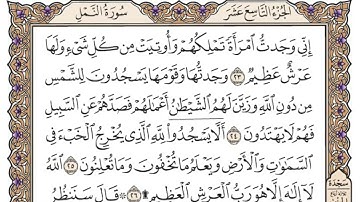 الجزء التاسع عشر
سورة النمل
إِنِّي وَجَدتُّ ٱمْرَأَةً تَمْلِكُهُمْ وَأُوتِيَتْ مِن كُلِّ شَىْءٍ وَلَهَا
عَرْشٌ عَظِيمٌ ٢٣ وَجَدتُّهَا وَقَوْمَهَا يَسْجُدُونَ لِلشَّمْسِ
مِن دُونِ ٱللَّهِ وَزَيَّنَ لَهُمُ ٱلشَّيْطَٰنُ أَعْمَٰلَهُمْ فَصَدَّهُمْ عَنِ ٱلسَّبِيلِ
فَهُمْ لَا يَهْتَدُونَ ٢٤ أَلَّا يَسْجُدُوا۟ لِلَّهِ ٱلَّذِى يُخْرِجُ ٱلْخَبْءَ فِى
ٱلسَّمَٰوَٰتِ وَٱلْأَرْضِ وَيَعْلَمُ مَا تُخْفُونَ وَمَا تُعْلِنُونَ ٢٥
ٱللَّهُ لَآ إِلَٰهَ إِلَّا هُوَ رَبُّ ٱلْعَرْشِ ٱلْعَظِيمِ ۩ ٢٦ ۞ قَالَ سَنَنظُرُ
سجدة